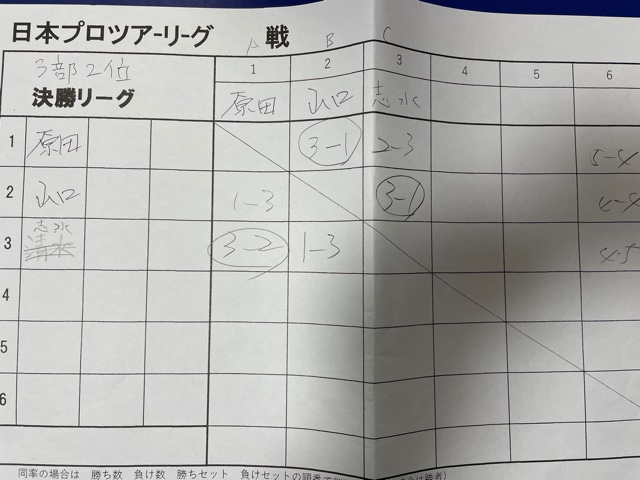 日本プロツアーリーグ 戦
A B C
3部2位
決勝リーグ
1 2 3 4 5 6
原田 山口 志水
1 原田 3-1 2-3 5-4
2 山口 1-3 3-1 4-4
志水
3 清水 3-2 1-3 4-5
4
5
6
同率の場合は 勝ち数 負け数 勝ちセット 負けセットの順番で